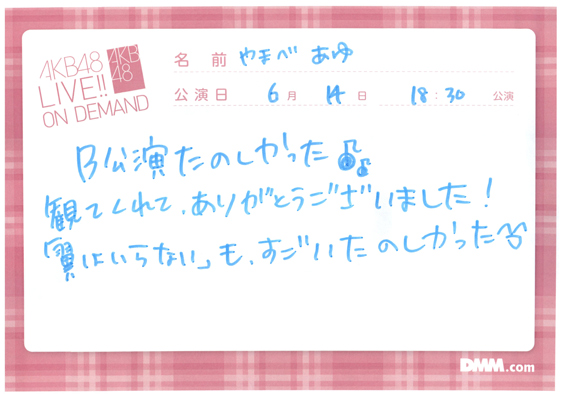 AKB48
LIVE!!
ON DEMAND
AKB
48
名 前 やまべ あゆ
公演日 6月 14日 18:30 公演
B公演たのしかった♪
観てくれて、ありがとうございました!
翼はいらない」も、すごいたのしかった
DMM.com